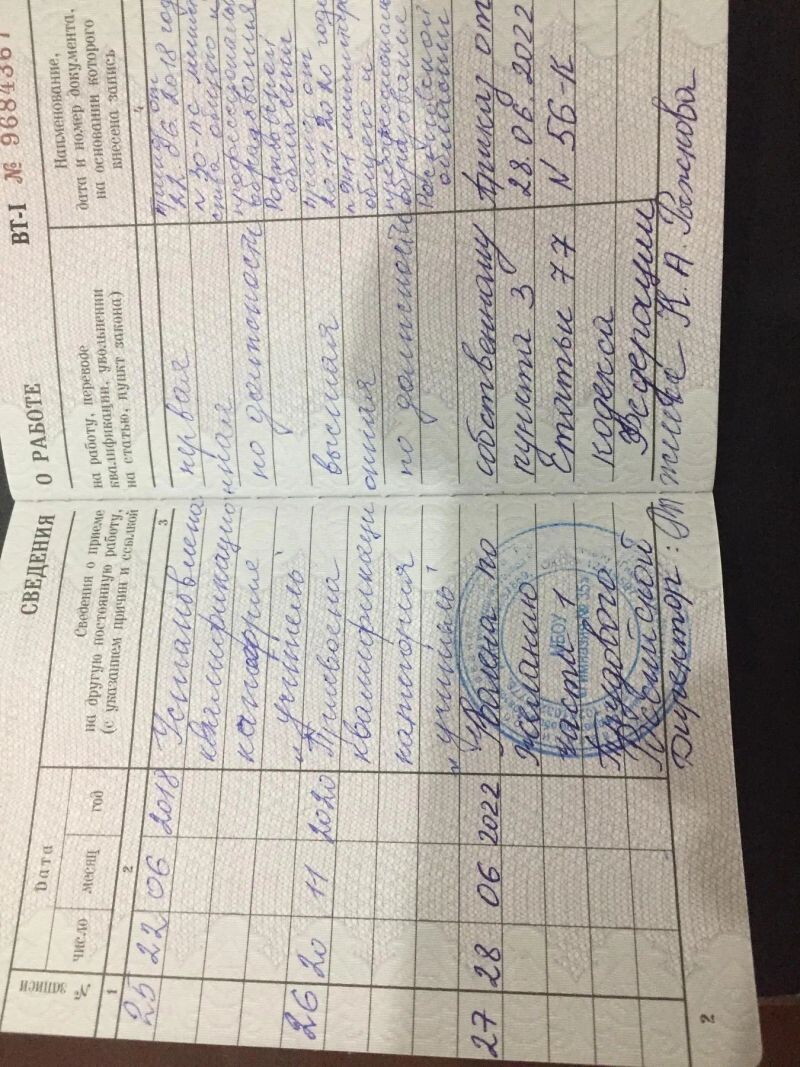 СВЕДЕНИЯ О РАБОТЕ ВТ-I № 9684367
№ записи
Дата
число месяц год
Сведения о приеме на работу, переводе
на другую постоянную работу, квалификации, увольнении
(с указанием причин и ссылкой на статью, пункт закона)
Наименование,
дата и номер документа,
на основании которого
внесена запись
1 2 3 4
25 22 06 2018 Установлена первая приказ от
22.06.2018 год
квалификационная
категория по должности
"учитель"
профессионального
образования
Ростовской
области
26 20 11 2020 Присвоена высшая приказ от
20.11.2020 год
квалификационная
категория по должности
"учитель"
общего и
профессионального
образование
Ростовской
области
27 28 06 2022 Уволена по собственному Приказ от
желанию пункта 3 28.06.2022
части 1 Статьи 77 N 56-К
Трудового кодекса
Российской Федерации
Директор: К. А. Рыжкова
МБОУ
2